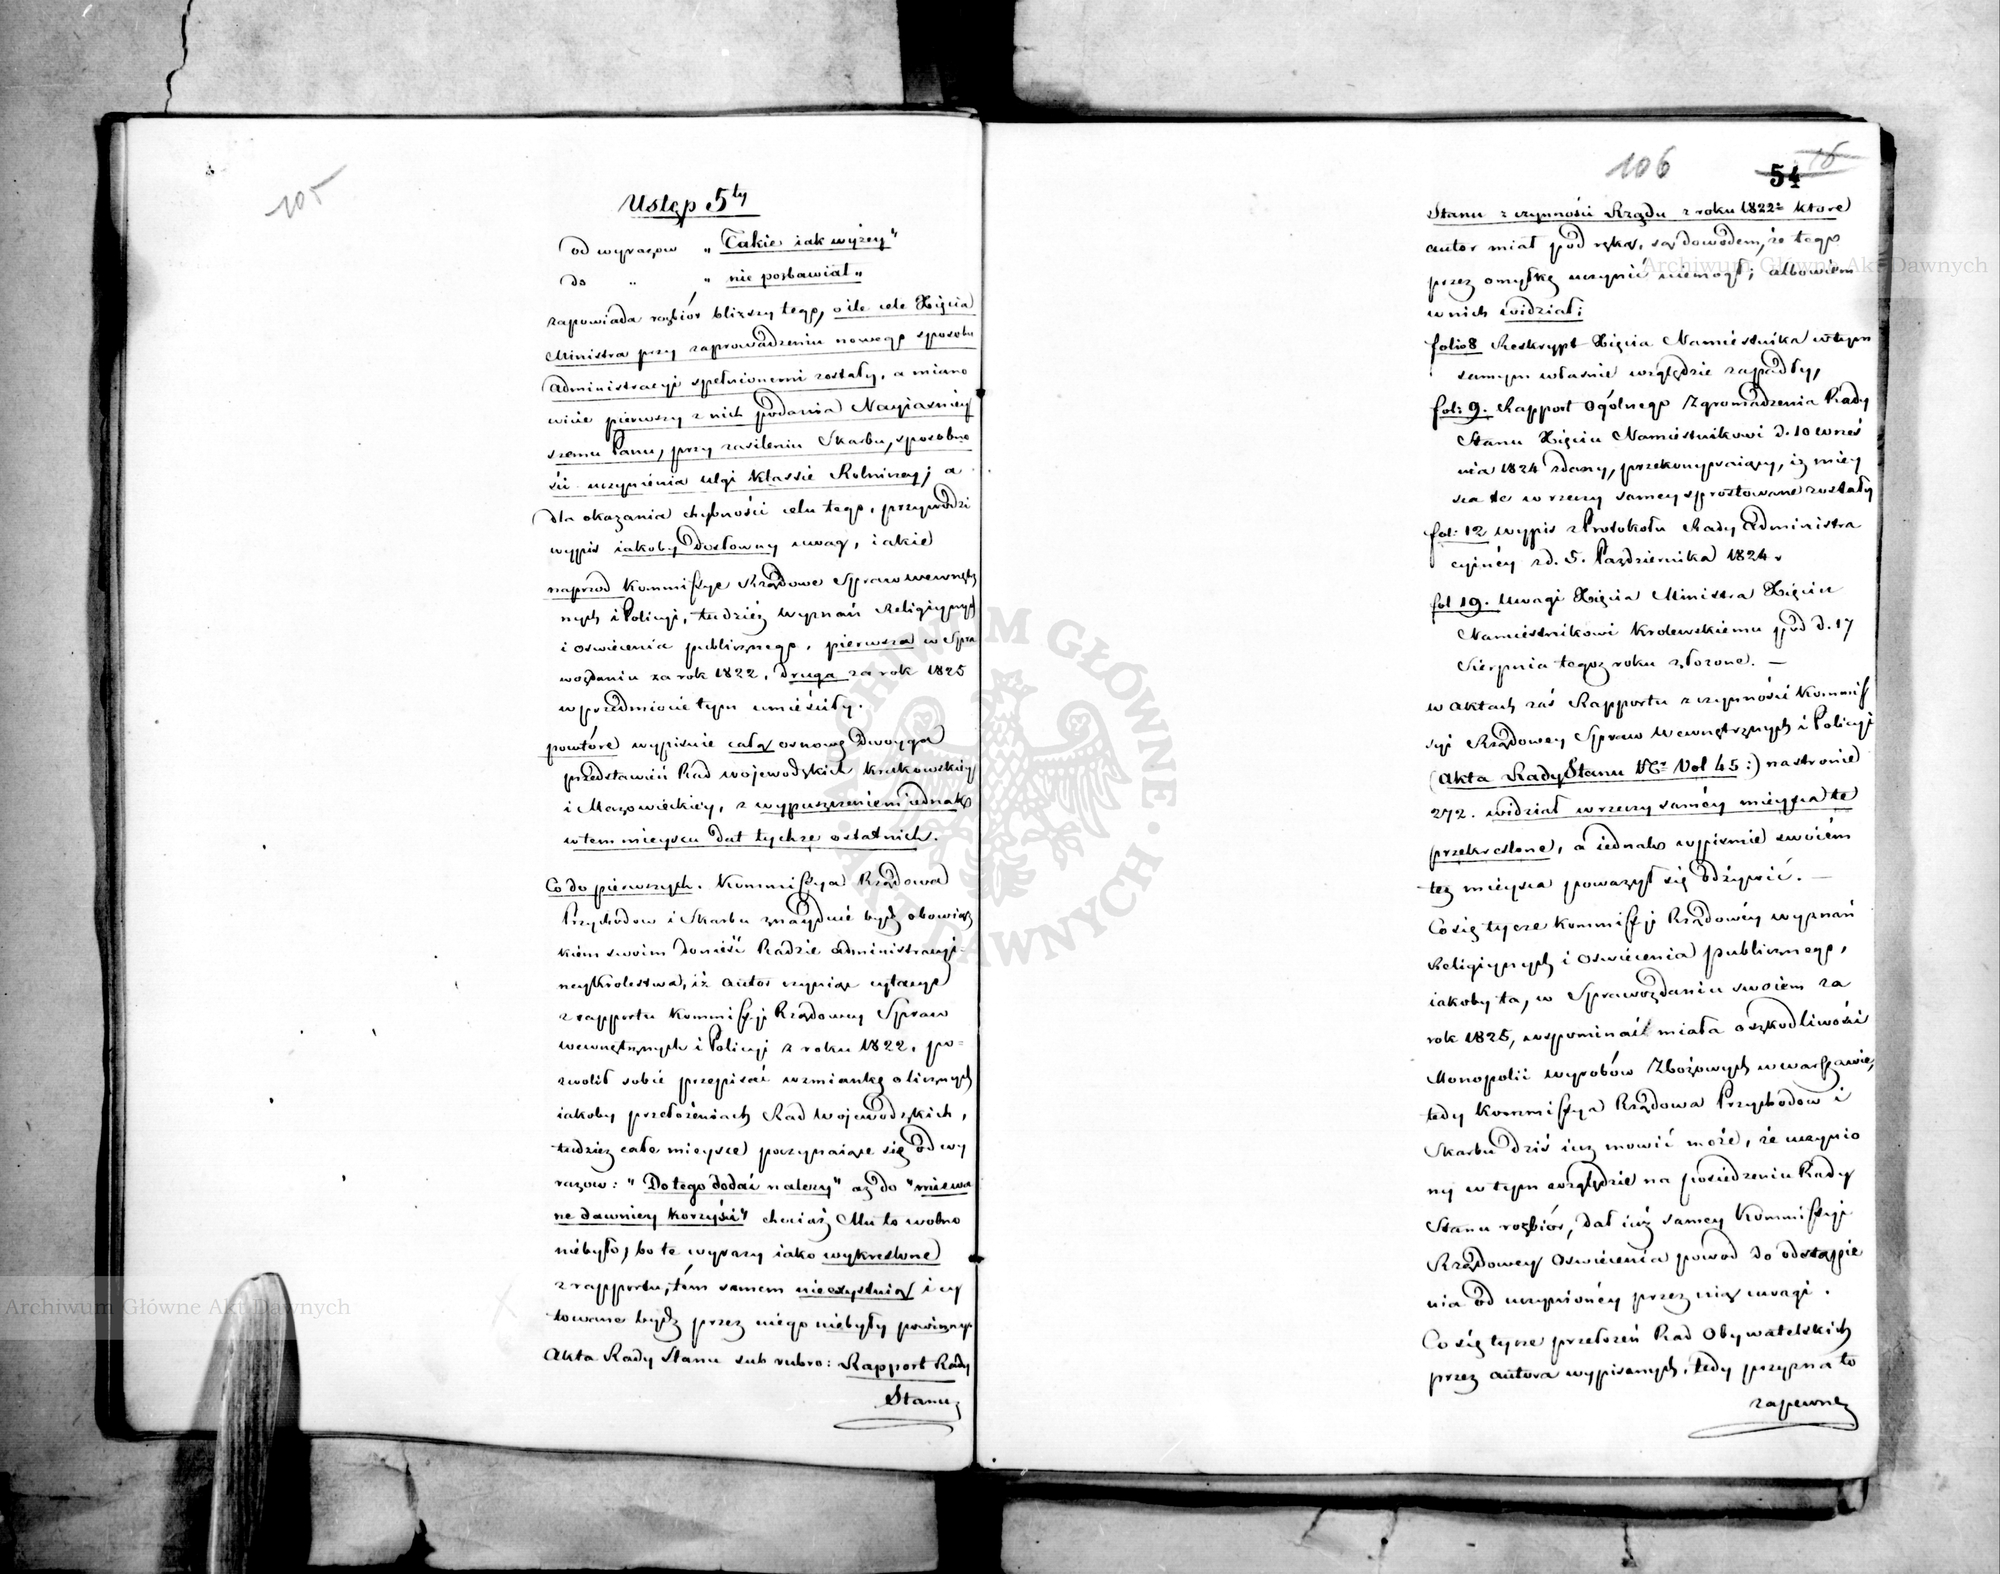 105
Ustęp 5ty
od wyrazow „Takie iak wyżey"
do „ „nie pozbawiał„
zapowiada rozbiór bliższy tego, o ile cele Xięcia
Ministra przy zaprowadzeniu nowego sposobu
Administracyi spełnionemi zostały, a miano
wicie pierwszy z nich podania Nayiaśniey
szemu Panu, przy zasileniu Skarbu, sposobno
ści uczynienia ulgi Klassie Rolniczey; a
dla okazania chybności celu tego, przywodzi
wypis iakoby dosłowny uwag, iakie
naprzod Kommissye Rządowe Spraw wewnętrz
nych i Policyi, tudzież Wyznań Religiynych
i Oswiecenia publicznego, pierwsza w Spra
wozdaniu za rok 1822, druga za rok 1825
w przedmiocie tym umieściły.
powtóre wypisuie całą osnowę Dwoyga
przedstawień Rad Wojewodzkich Krakowskiey
i Mazowieckiey, z wypuszczeniem iednak
w tem mieyscu dat tychże ostatnich.
Co do pierwszych. Kommissya Rządowa
Przychodow i Skarbu znayduie bydź obowiąz
kiem swoim donieść Radzie Administracyi
ney Krolestwa, iż Autor czyniąc cytacye
z rapportu Kommissyi Rządowey Spraw
wewnętrznych i Policyi z roku 1822, po=
zwolił sobie przepisać wzmiankę o licznych
iakoby przełożeniach Rad Wojewodzkich,
tudzież całe mieysce poczynaiące się od wy
razow: "Do tego dodać należy" aż do "miewa
ne dawniey korzyści" chociaż Mu to wolno
niebyło, bo te wyrazy iako wykreślone
z rapportu, tém samem nieexystuią i cy
towane bydź przez niego niebyły powinny.
Akta Rady Stanu sub rubro: Rapport Rady
Stanu
106
54
Stanu z czynności Rządu z roku 1822 które
autor miał pod ręką, są dowodem, że tego
przez omyłkę uczynić niemogł; albowiem
w nich widział:
folio 8 Reskrypt Xięcia Namiestnika w tym
samym właśnie względzie zapadły,
fol: 9. Rapport Ogólnego Zgromadzenia Rady
Stanu Xięciu Namiestnikowi d. 10 wrześ
nia 1824 zdany, przekonywaiący, iż miey
sca te w rzeczy samey sprostowane zostały
fol: 12 wypis z Protokołu Rady Administra
cyinéy z d. 5. Pazdziernika 1824.
fol 19. Uwagi Xięcia Ministra Xięciu
Namiestnikowi Krolewskiemu pod d. 17
Sierpnia tegoż roku złożone. —
w Aktach zaś Rapportu z czynności Kommis
syi Rządowey Spraw Wewnętrznych i Policyi
(Akta Rady Stanu Vol 45:) na stronie
272. widział w rzeczy saméy mieysca te
przekreślone, a iednak wypismie swoiém
też mieysca poważył się odżywić. —
Co się tycze Kommissyi Rządowéy wyznań
Religiynych i Oswiecenia publicznego,
iakoby ta, w Sprawozdaniu swoiem za
rok 1825, wspominać miała o szkodliwości
Monopolii wyrobów Zbożowych w Warszawie,
tedy Kommissya Rządowa Przychodow i
Skarbu dziś iuż mowić może, że uczynio
ny w tym względzie na posiedzeniu Rady
Stanu rozbiór, dał iuż samey Kommissyi
Rządowey Oswiecenia powod do odstąpie
nia od uczynionéy przez nią uwagi.
Co się tycze przełożeń Rad Obywatelskich
przez autora wypisanych, tedy przyzna to
zapewne
Archiwum Główne Akt Dawnych
Archiwum Główne Akt Dawnych
ARCHIWUM GŁÓWNE · AKT DAWNYCH ·